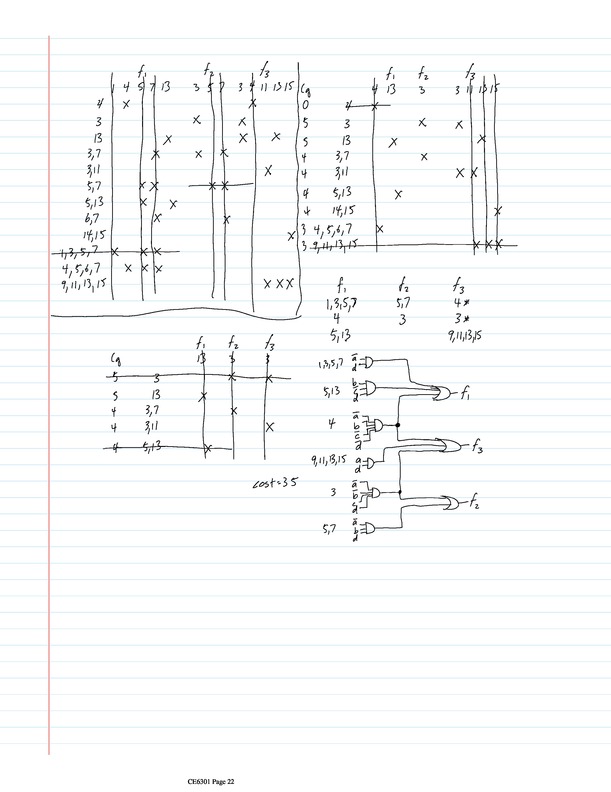 f₁ f₂ f₃
1 4 5 7 13 3 5 7 3 4 11 13 15
4 x x
3 x x
13 x x x
3,7 x x x
3,11 x
5,7 x x x x
5,13 x x
6,7 x x
14,15 x
1,3,5,7 x x x
4,5,6,7 x x x
9,11,13,15 x x x
f₁ f₂ f₃
Cq 4 13 3 3 11 13 15
0 4 x
5 3 x x
5 13 x x
4 3,7 x
4 3,11 x x
4 5,13 x
4 14,15 x
3 4,5,6,7 x
3 9,11,13,15 x x x
f₁ f₂ f₃
1,3,5,7 5,7 4*
4 3 3*
5,13 9,11,13,15
f₁ f₂ f₃
Cq 13 3 3
5 3 x x
5 13 x
4 3,7 x
4 3,11 x
4 5,13 x
cost=35
1,3,5,7 a̅ d
5,13 b c̅ d f₁
4 a̅ b c̅ d̅
f₃
9,11,13,15 a d
3 a̅ b̅ c d
f₂
5,7 a̅ b d
CE6301 Page 22